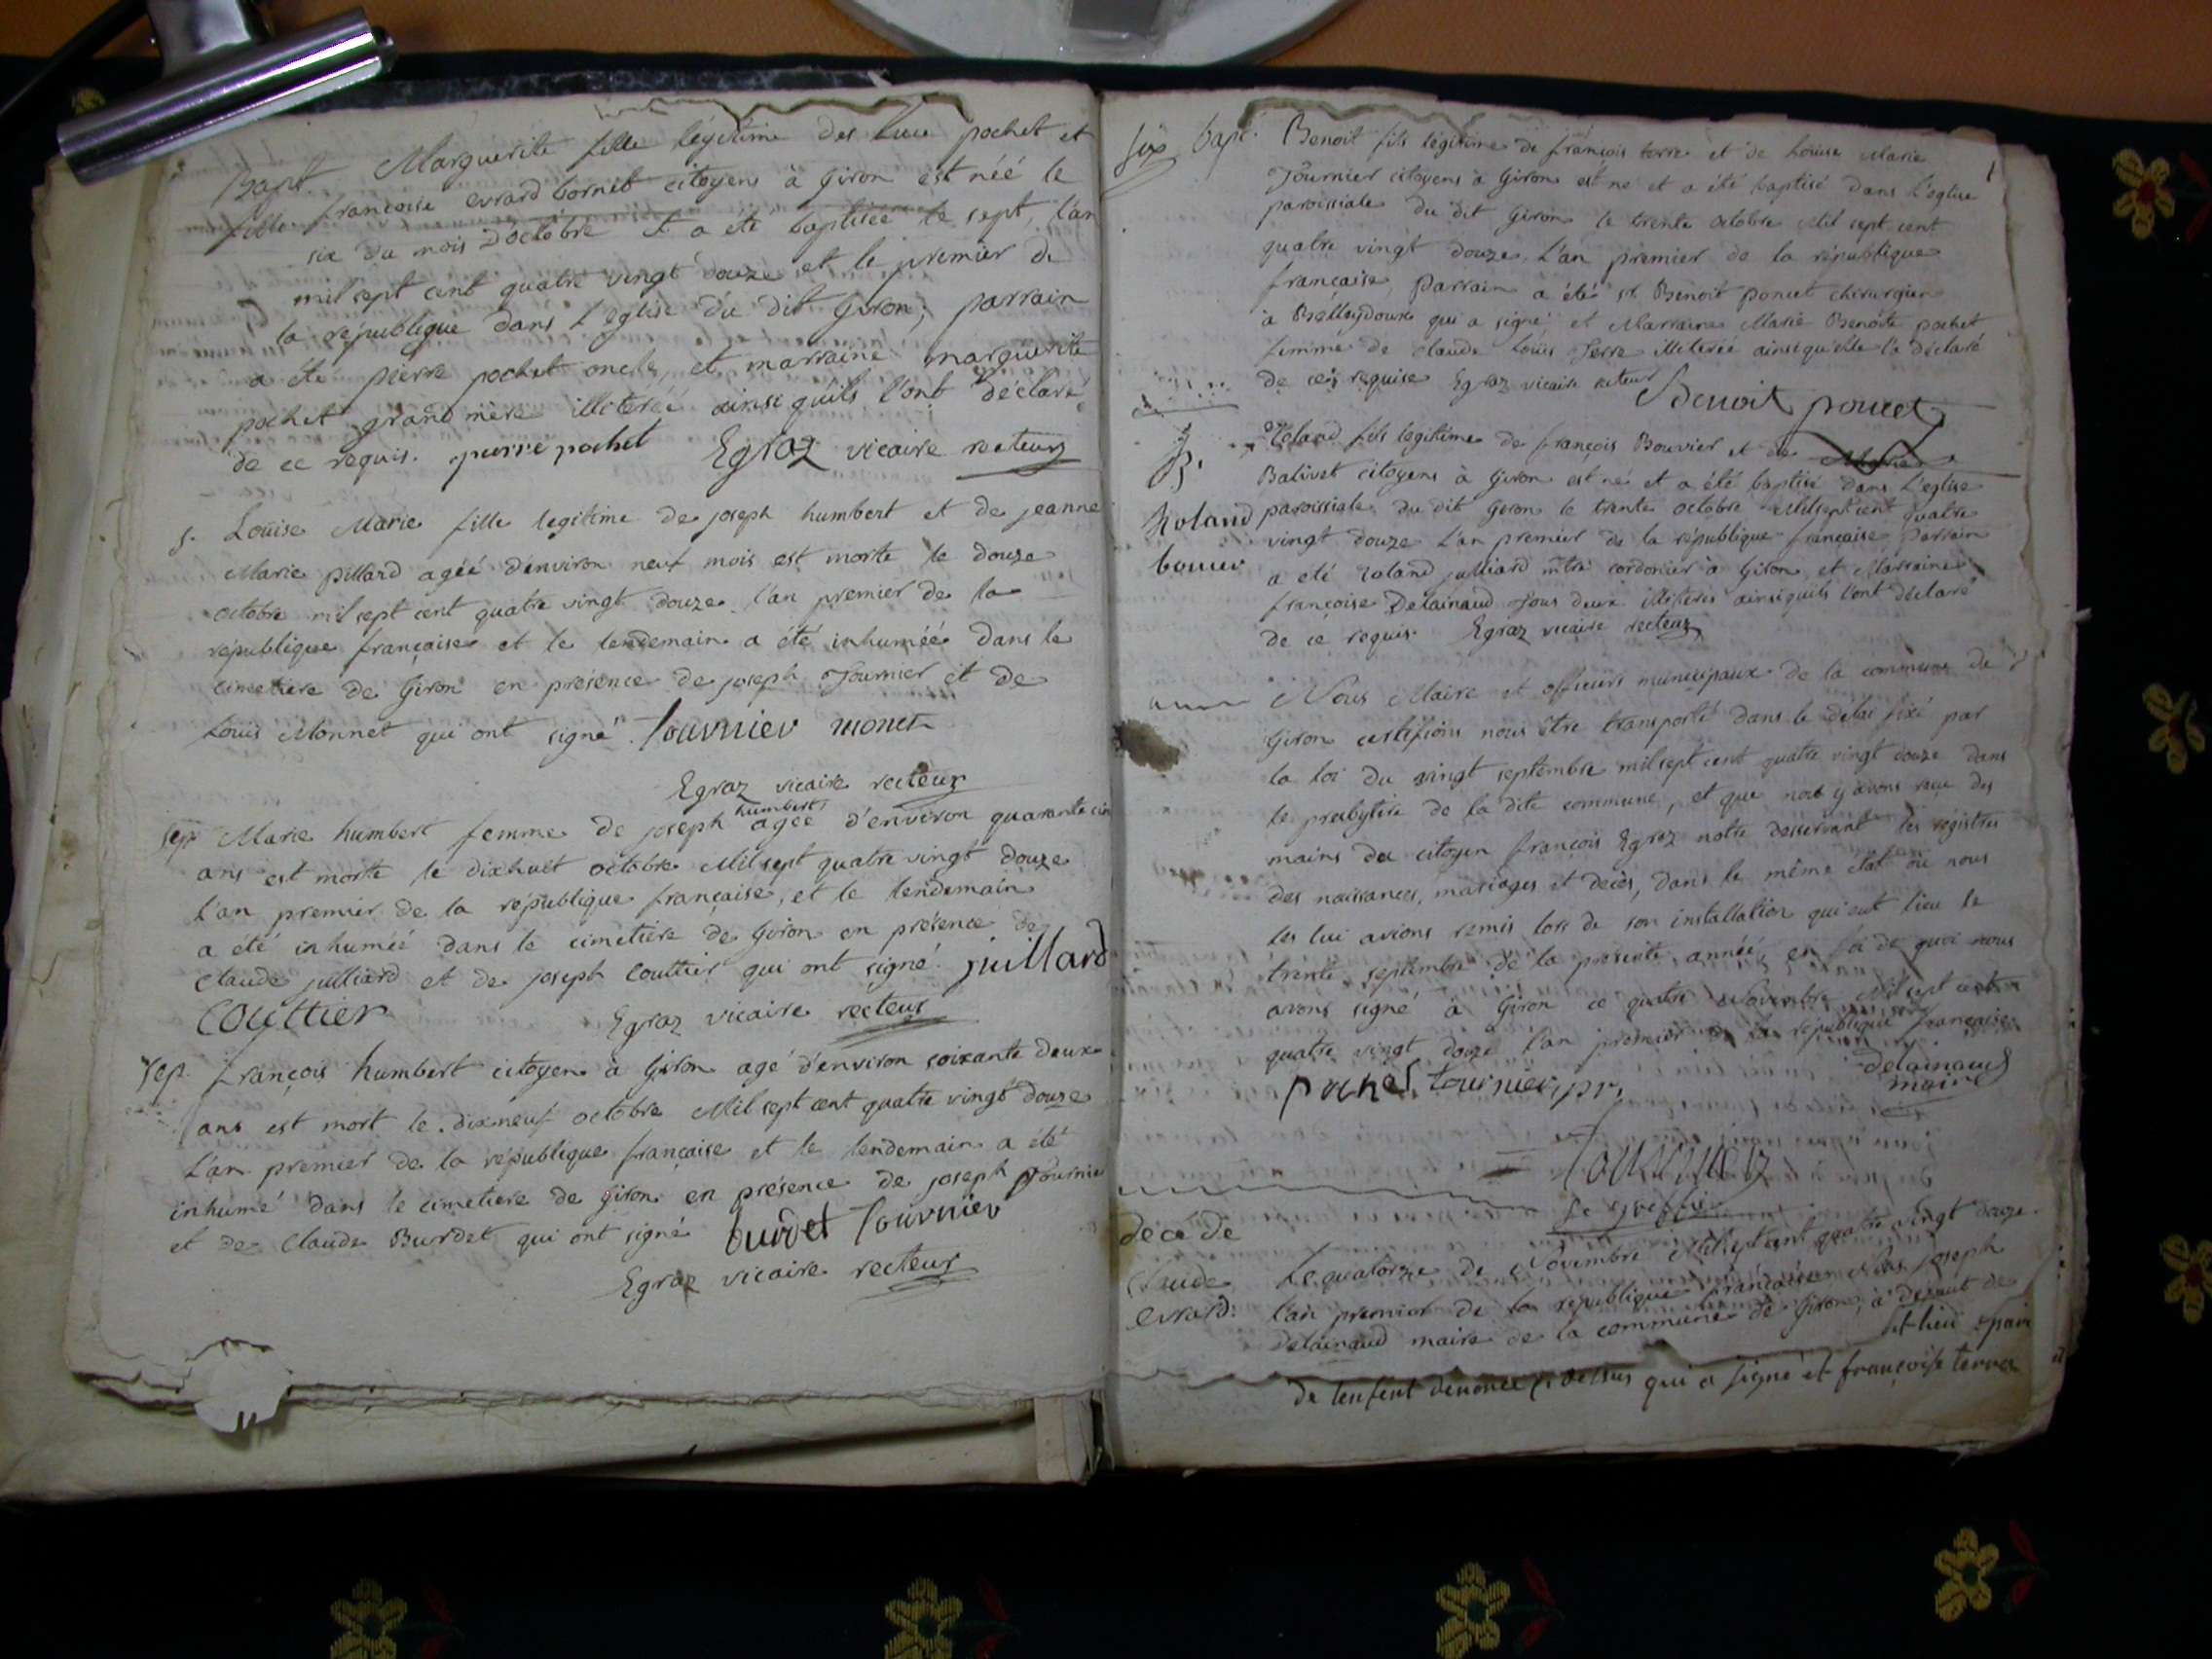 Bapt. Marguerite fille légitime de Luc pochet et
fille francoise evrard bornet citoyens à Giron est néé le
six du mois D'octobre et a été baptisée le sept, l'an
mil sept cent quatre vingt douze et le premier de
la république dans l'église du dit Giron; parrain
a été pierre pochet oncle, et marraine marguerite
pochet grand mère illiterée ainsi qu'ils l'ont déclaré
de ce requis. pierre pochet Egraz vicaire recteur
s. Louise Marie fille legitime de joseph humbert et de jeanne
Marie pillard agéé d'environ neuf mois est morte le douze
octobre mil sept cent quatre vingt douze l'an premier de la
république française et le lendemain a été inhuméé dans le
cimetiere de Giron en présence de joseph Tournier et de
Louis Monnet qui ont signé. tournier monet
Egraz vicaire recteur
sep. Marie humbert femme de joseph humbert agée d'environ quarante cin
ans est morte le dixhuit octobre Mil sept quatre vingt douze
L'an premier de la république française, et le lendemain
a été inhuméé dans le cimetiere de Giron en présence de
Claude julliard et de joseph Couttier qui ont signé. juillard
Couttier Egraz vicaire recteur
sep. françois humbert citoyen à Giron agé d'environ soixante deux
ans est mort le dixneuf octobre Mil sept cent quatre vingt douze
L'an premier de la république française et le lendemain a été
inhumé dans le cimetiere de Giron en présence de joseph Tournier
et de Claude Burdet qui ont signé burdet tournier
Egraz vicaire recteur
bapt. Benoit fils légitime de françois terre et de Louise Marie
Tournier citoyens à Giron est né et a été baptisé dans l'église
paroissiale du dit Giron le trente octobre Mil sept cent
quatre vingt douze, L'an premier de la république
française, parrain a été sr. Benoit poncet chirurgien
à Belleydoux qui a signé, et Marraine Marie Benoite pochet
femme de Claude Louis Terre illiterée ainsi qu'elle l'a déclaré
de ce requise Egraz vicaire recteur
Benoit poncet
B. Roland fils legitime de françois Bouvier et de Marie
Balivet citoyens à Giron est né et a été baptisé dans l'église
Roland paroissiale du dit Giron le trente octobre Mil sept cent quatre
vingt douze L'an premier de la république française, parrain
a été roland julliard mtre cordonier à Giron, et Marraine
françoise Delainaud tous deux illiterés ainsi qu'ils l'ont déclaré
de ce requis. Egraz vicaire recteur
Nous Maire et officiers municipaux de la commune de
Giron certifions nous être transporté dans le délai fixé par
la loi du vingt septembre mil sept cent quatre vingt douze dans
le presbytère de la dite commune, et que nous y avons reçu des
mains du citoyen françois Egraz notre desservant les registres
des naissances, mariages et décès, dans le même état où nous
les lui avions remis lors de son installation qui eut lieu le
trente septembre de la présente année, en foi de quoi nous
avons signé à Giron ce quatre Novembre Mil sept cent
quatre vingt douze l'an premier de la république française
pochet tournier, pr. delainaud
maire
Tournier
le greffier
décé de
Claude Le quatorze de Novembre Mil sept cent quatre vingt douze
Evrard: l'an premier de la république française Nous joseph
Delainaud maire de la commune de Giron, à défaut de
de lenfent dénoncé ci dessus qui a signé et françoise terre